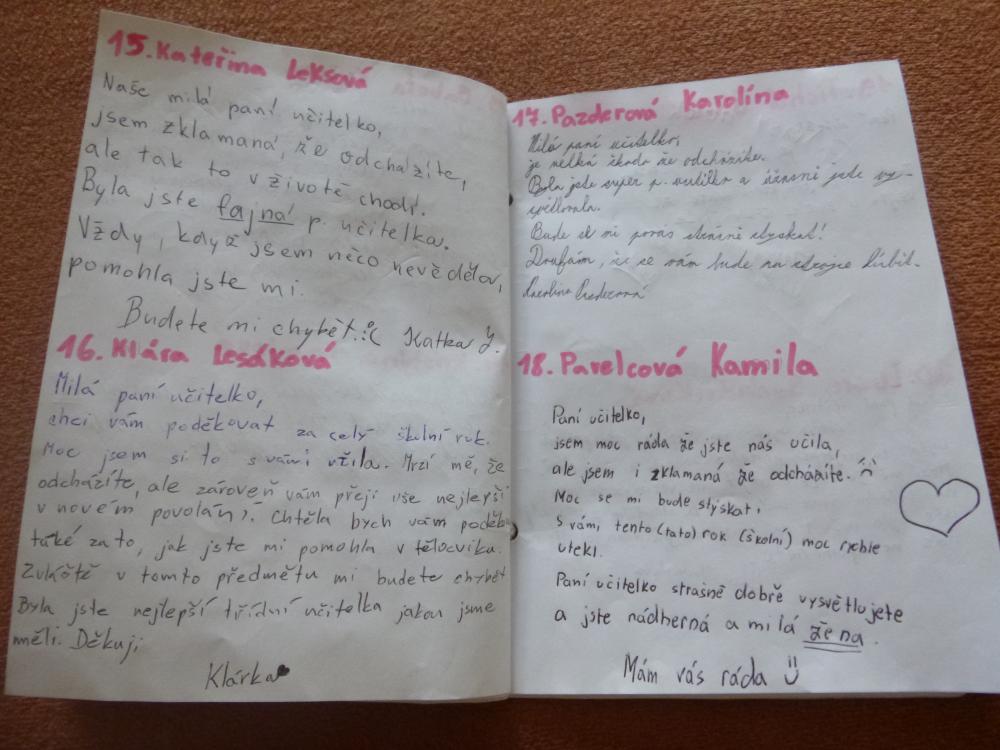 15. Kateřina Leksová
Naše milá paní učitelko,
jsem zklamaná, že odcházíte,
ale tak to v životě chodí.
Byla jste fajná p. učitelka.
Vždy, když jsem něco nevěděla,
pomohla jste mi.
Budete mi chybět :( Katka
16. Klára Lesáková
Milá paní učitelko,
chci vám poděkovat za celý školní rok.
Moc jsem si to s vámi užila. Mrzí mě, že
odcházíte, ale zároveň vám přeji vše nejlepší
v novém povolání. Chtěla bych vám poděko
také za to, jak jste mi pomohla v tělocviku.
Zvláště v tomto předmětu mi budete chybět
Byla jste nejlepší třídní učitelka jakou jsme
měli. Děkuji
Klárka
17. Pazderová Karolína
Milá paní učitelko,
je velká škoda že odcházíte.
Byla jste super p. učitelka a úžasně jste vy-
světlovala.
Bude se mi po vás strašně stýskat!
Doufám, že se vám bude na stroje líbit.
Karolína Pazderová
18. Pavelcová Kamila
Paní učitelko,
jsem moc ráda že jste nás učila,
ale jsem i zklamaná že odcházíte. :(
Moc se mi bude stýskat,
s vámi, tento (tato) rok (školní) moc rychle
utekl.
Paní učitelko strašně dobře vysvětlujete
a jste nádherná a milá žena.
Mám vás ráda :)